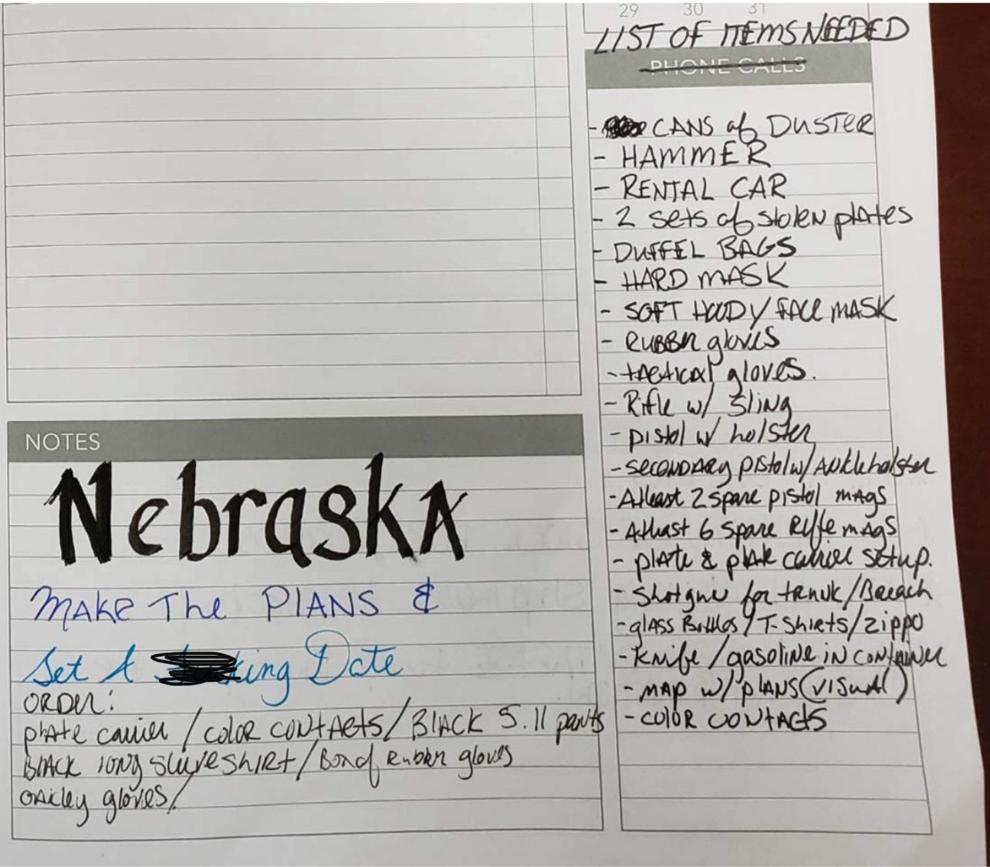 29 30 31
LIST OF ITEMS NEEDED
PHONE CALLS
- CANS of DUSTER
- HAMMER
- RENTAL CAR
- 2 sets of stolen plates
- DUFFEL BAGS
- HARD MASK
- SOFT HOODY/ FACE MASK
- RUBBER gloves
- tactical gloves.
- Rifle w/ Sling
- pistol w/ holster
- SECONDARY pistol w/ Ankle holster
- Atleast 2 spare pistol mags
- Atleast 6 spare Rifle mags
- plate & plate carrier setup.
- Shotgun for trunk/Breach
- glass Bottles/T-Shirts/zippo
- Knife/gasoline in container
- MAP w/ plans (visual)
- COLOR CONTACTS
NOTES
NebraskA
MAKE The PlANS &
Set A king Date
ORDER:
plate carrier /color contacts/ BLACK 5.11 pants
BLACK long sleeve shirt/ Box of Rubber gloves
OAKley gloves/